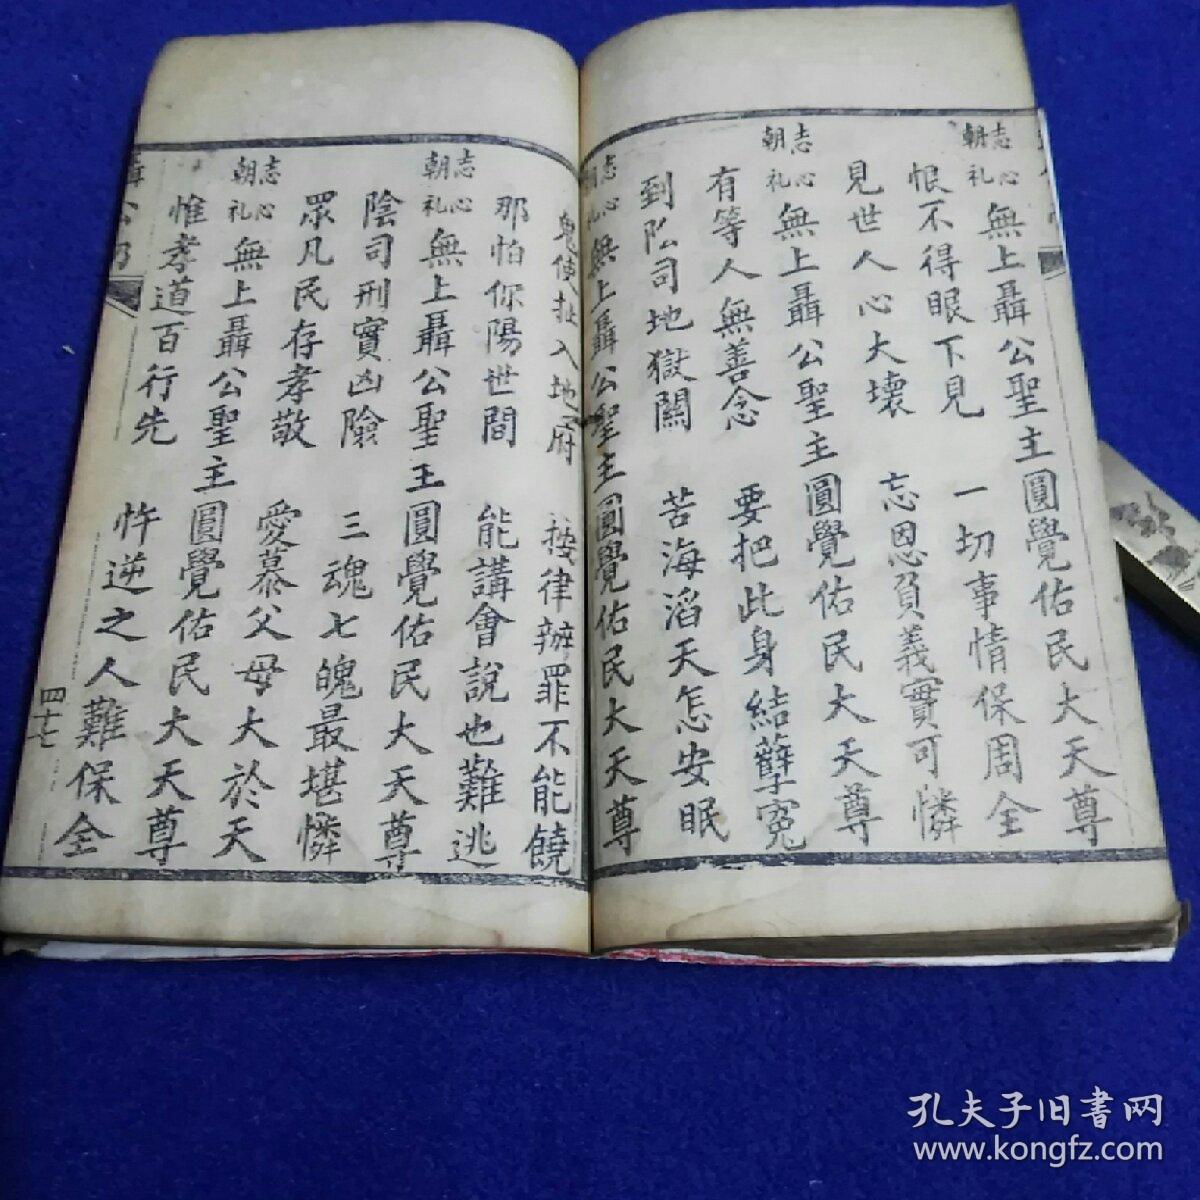 志心朝礼無上聶公聖主圓覺佑民大天尊
恨不得眼下見 一切事情保周全
見世人心大壞 忘恩負義實可憐
志心朝礼無上聶公聖主圓覺佑民大天尊
有等人無善念 要把此身結孽冤
到阴司地獄關 苦海滔天怎安眠
志心朝礼無上聶公聖主圓覺佑民大天尊
鬼使扯入地府 按律辦罪不能饒
那怕你陽世間 能講會說也難逃
志心朝礼無上聶公聖王圓覺佑民大天尊
陰司刑實凶險 三魂七魄最堪憐
眾凡民存孝敬 愛慕父母大於天
志心朝礼無上聶公聖主圓覺佑民大天尊
惟孝道百行先 忤逆之人難保全
四十七
孔夫子旧書网
www.kongfz.com